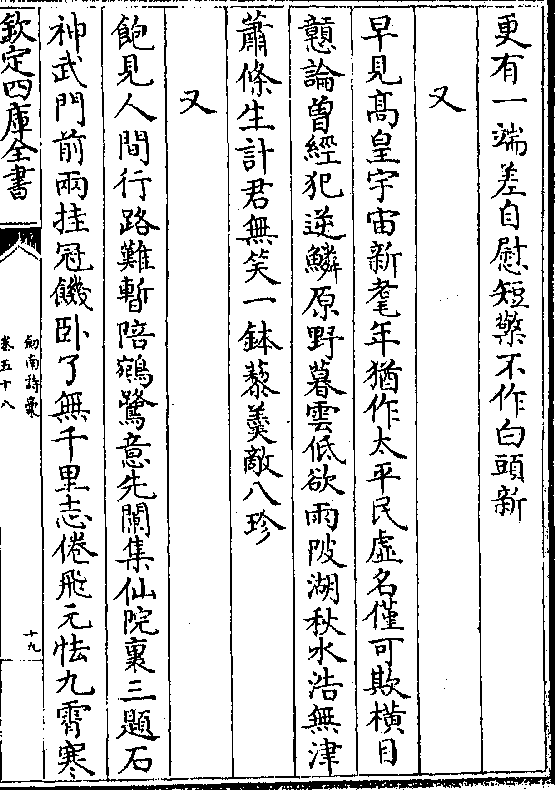 更有一端差自慰短檠不作白頭新
又
早見髙皇宇宙新耄年猶作太平民虚名僅可欺横目
戇論曽經犯逆鱗原野暮雲低欲雨陂湖秋水浩無津
蕭條生計君無笑一鉢藜羮敵八珍
又
飽見人間行路難暫陪鵷鷺意先闌集仙院裏三題石
神武門前兩挂冠饑卧了無千里志倦飛元怯九霄寒
欽定四庫全書
劒南詩稾
卷五十八
十九